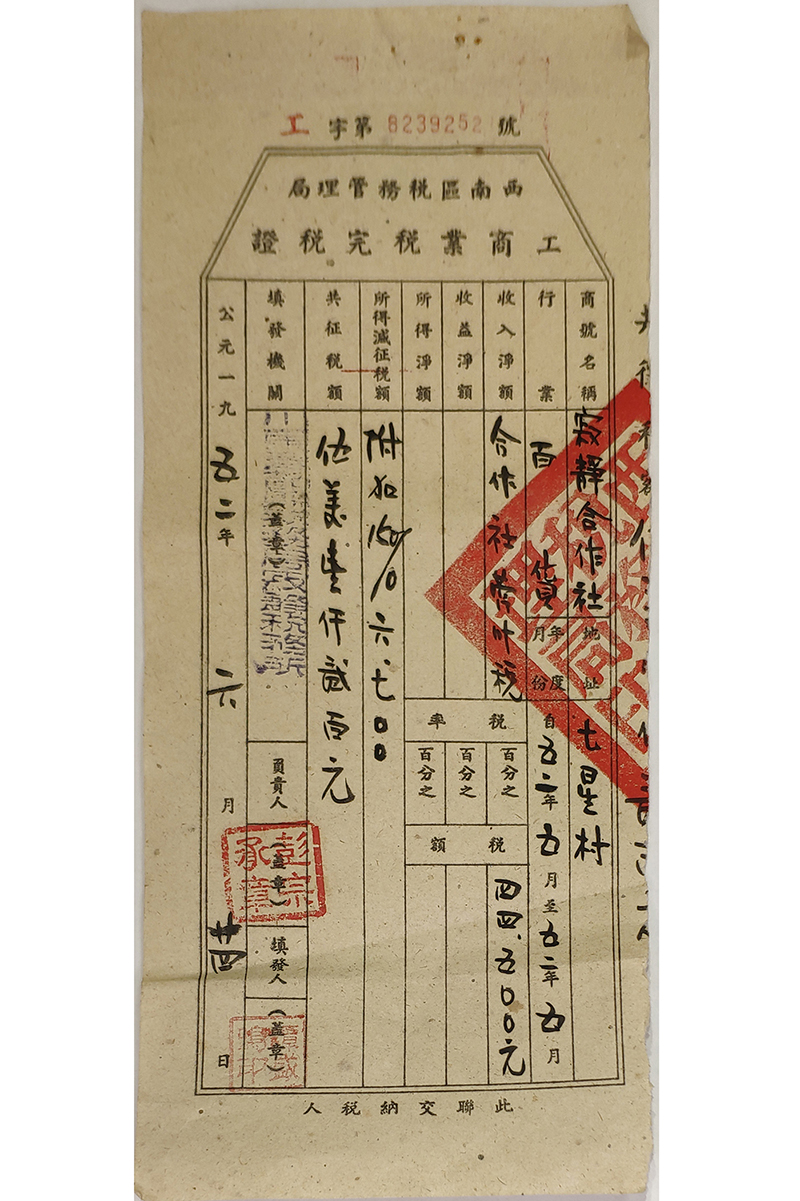 工字第8239252號
西南區稅務管理局
工商業稅完稅證
商號名稱 寂靜合作社 地址 七星村
行業 百貨 年度月份 自五二年五月至五二年五月
收入淨額 合作社 叶稅 稅率 百分之 稅額 四四.五00元
收益淨額 百分之
所得淨額 百分之
所得減征稅額 附加15% 六.七00
共征稅額 伍萬壹仟貳百元
填發機關 (盖章) 負責人 (盖章) 彭宗承章 填發人 (盖章)
公元一九五二年六月廿四日
此聯交納稅人